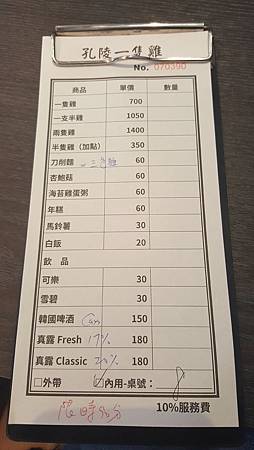 孔陵一隻雞
No. 070390
商品 單價 數量
一隻雞 700
一支半雞 1050
兩隻雞 1400
半隻雞（加點） 350
刀削麵 60
杏鮑菇 60
海苔雞蛋粥 60
年糕 60
馬鈴薯 30
白飯 20
飲 品
可樂 30
雪碧 30
韓國啤酒 Can 150
真露 Fresh 17% 180
真露 Classic 20% 180
□外帶 □內用-桌號： 8
限時90分 10%服務費